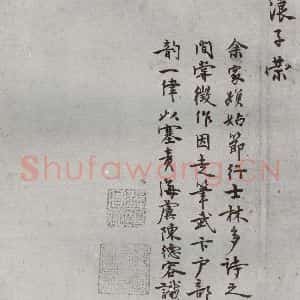 浪子
余家姑節行士林多詩之
間嘗徵作因走筆卞户部
韵一律以塞責海虞陳德容識
Shufawang.CN